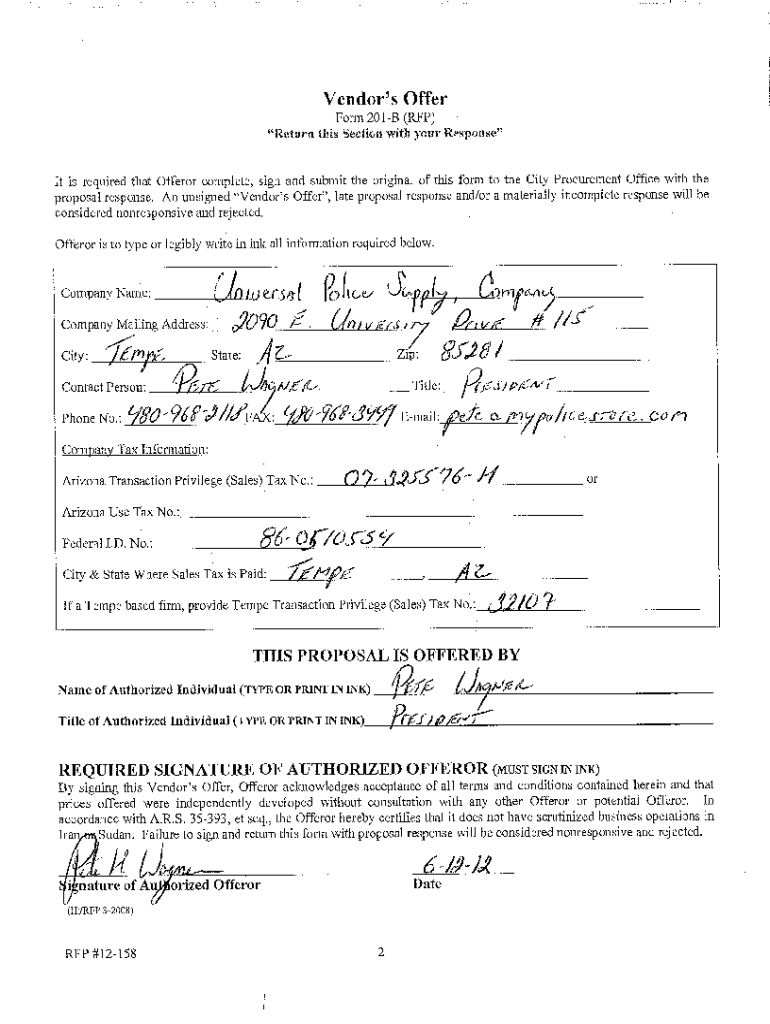 Vendor's Offer
Form 201-B (RFP)
"Return this Section with your Response"
It is required that Offeror complete, sign and submit the original of this form to the City Procurement Office with the
proposal response. An unsigned "Vendor's Offer", late proposal response and/or a materially incomplete response will be
considered nonresponsive and rejected.
Offeror is to type or legibly write in ink all information required below.
Company Name: Universal Police Supply, Company
Company Mailing Address: 2090 E. University Drive # 115
City: Tempe State: AZ Zip: 85281
Contact Person: Pete Wagner Title: President
Phone No.: 480-968-2118 FAX: 480-968-3449 E-mail: pete@mypolicestore.com
Company Tax Information:
Arizona Transaction Privilege (Sales) Tax No.: 07-325576-H or
Arizona Use Tax No.:
Federal I.D. No.: 86-0510554
City & State Where Sales Tax is Paid: Tempe, AZ
If a Tempe based firm, provide Tempe Transaction Privilege (Sales) Tax No.: 32107
THIS PROPOSAL IS OFFERED BY
Name of Authorized Individual (TYPE OR PRINT IN INK) Pete Wagner
Title of Authorized Individual (TYPE OR PRINT IN INK) President
REQUIRED SIGNATURE OF AUTHORIZED OFFEROR (MUST SIGN IN INK)
By signing this Vendor's Offer, Offeror acknowledges acceptance of all terms and conditions contained herein and that
prices offered were independently developed without consultation with any other Offeror or potential Offeror. In
accordance with A.R.S. 35-393, et seq., the Offeror hereby certifies that it does not have scrutinized business operations in
Iran or Sudan. Failure to sign and return this form with proposal response will be considered nonresponsive and rejected.
Pete H Wagner 6-12-12
Signature of Authorized Offeror Date
(H/RFP 3-2008)
RFP #12-158 2